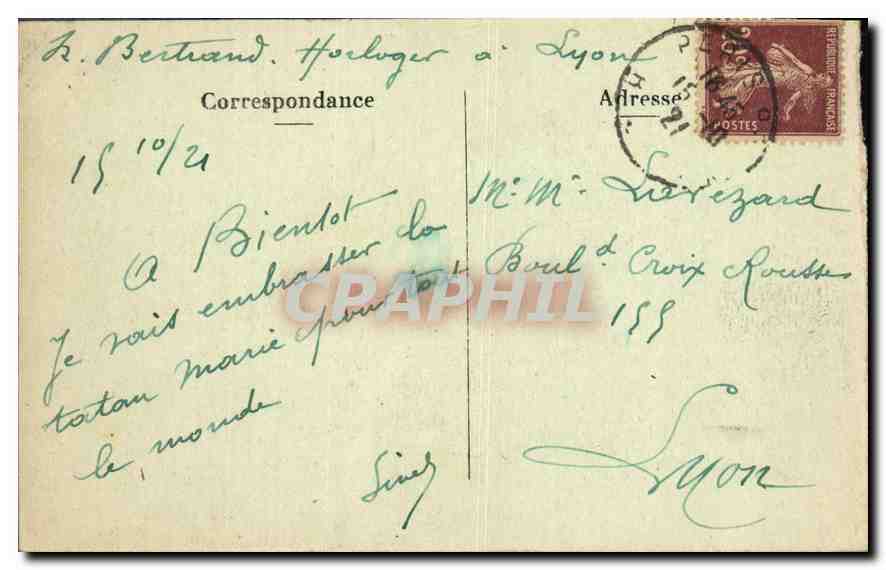 Bertrand. Horloger à Lyon
Correspondance
Adresse
REPUBLIQUE FRANÇAISE
POSTES
15 10/21
A Bientot
Je vais embrasser la
tatan Marie pour tout
le monde
Mr Me
Boul d Croix Rousse
155
Lyon
CPAPHIL